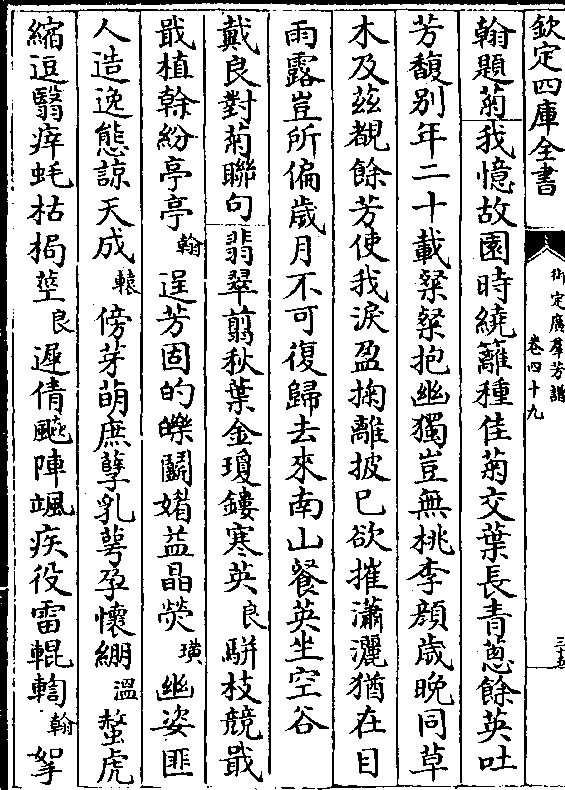 欽定四庫全書
御定廣羣芳譜
卷四十九
三十五
翰題菊我憶故園時繞籬種佳菊交葉長青葱餘英吐
芳馥别年二十載粲粲抱幽獨豈無桃李顔歲晚同草
木及兹覩餘芳使我淚盈掬離披已欲摧瀟灑猶在目
雨露豈所偏歲月不可復歸去來南山餐英坐空谷
戴良對菊聯句翡翠翦秋葉金瓊鏤寒英良駢枝競戢
戢植榦紛亭亭翰逞芳固的皪鬭婧益晶熒璜幽姿匪
人造逸態諒天成轅傍芽萌庶孽乳萼孕懷綳溫螫虎
縮逗翳瘁蚝枯梮莖良遲倩颰陣颯疾役雷輥輷翰挐